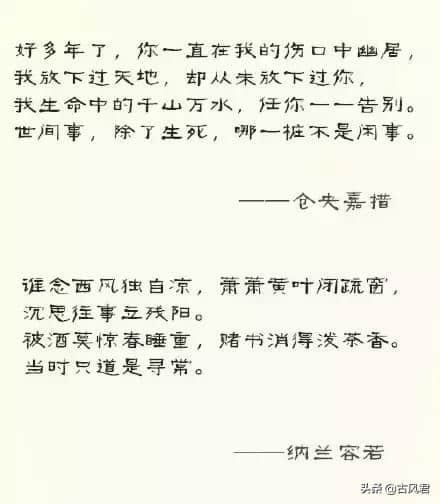 好多年了，你一直在我的伤口中幽居，
我放下过天地，却从未放下过你，
我生命中的千山万水，任你一一告别。
世间事，除了生死，哪一桩不是闲事。
———仓央嘉措
谁念西风独自凉，萧萧黄叶闭疏窗，
沉思往事立残阳。
被酒莫惊春睡重，赌书消得泼茶香。
当时只道是寻常。
———纳兰容若
头条 @古风君